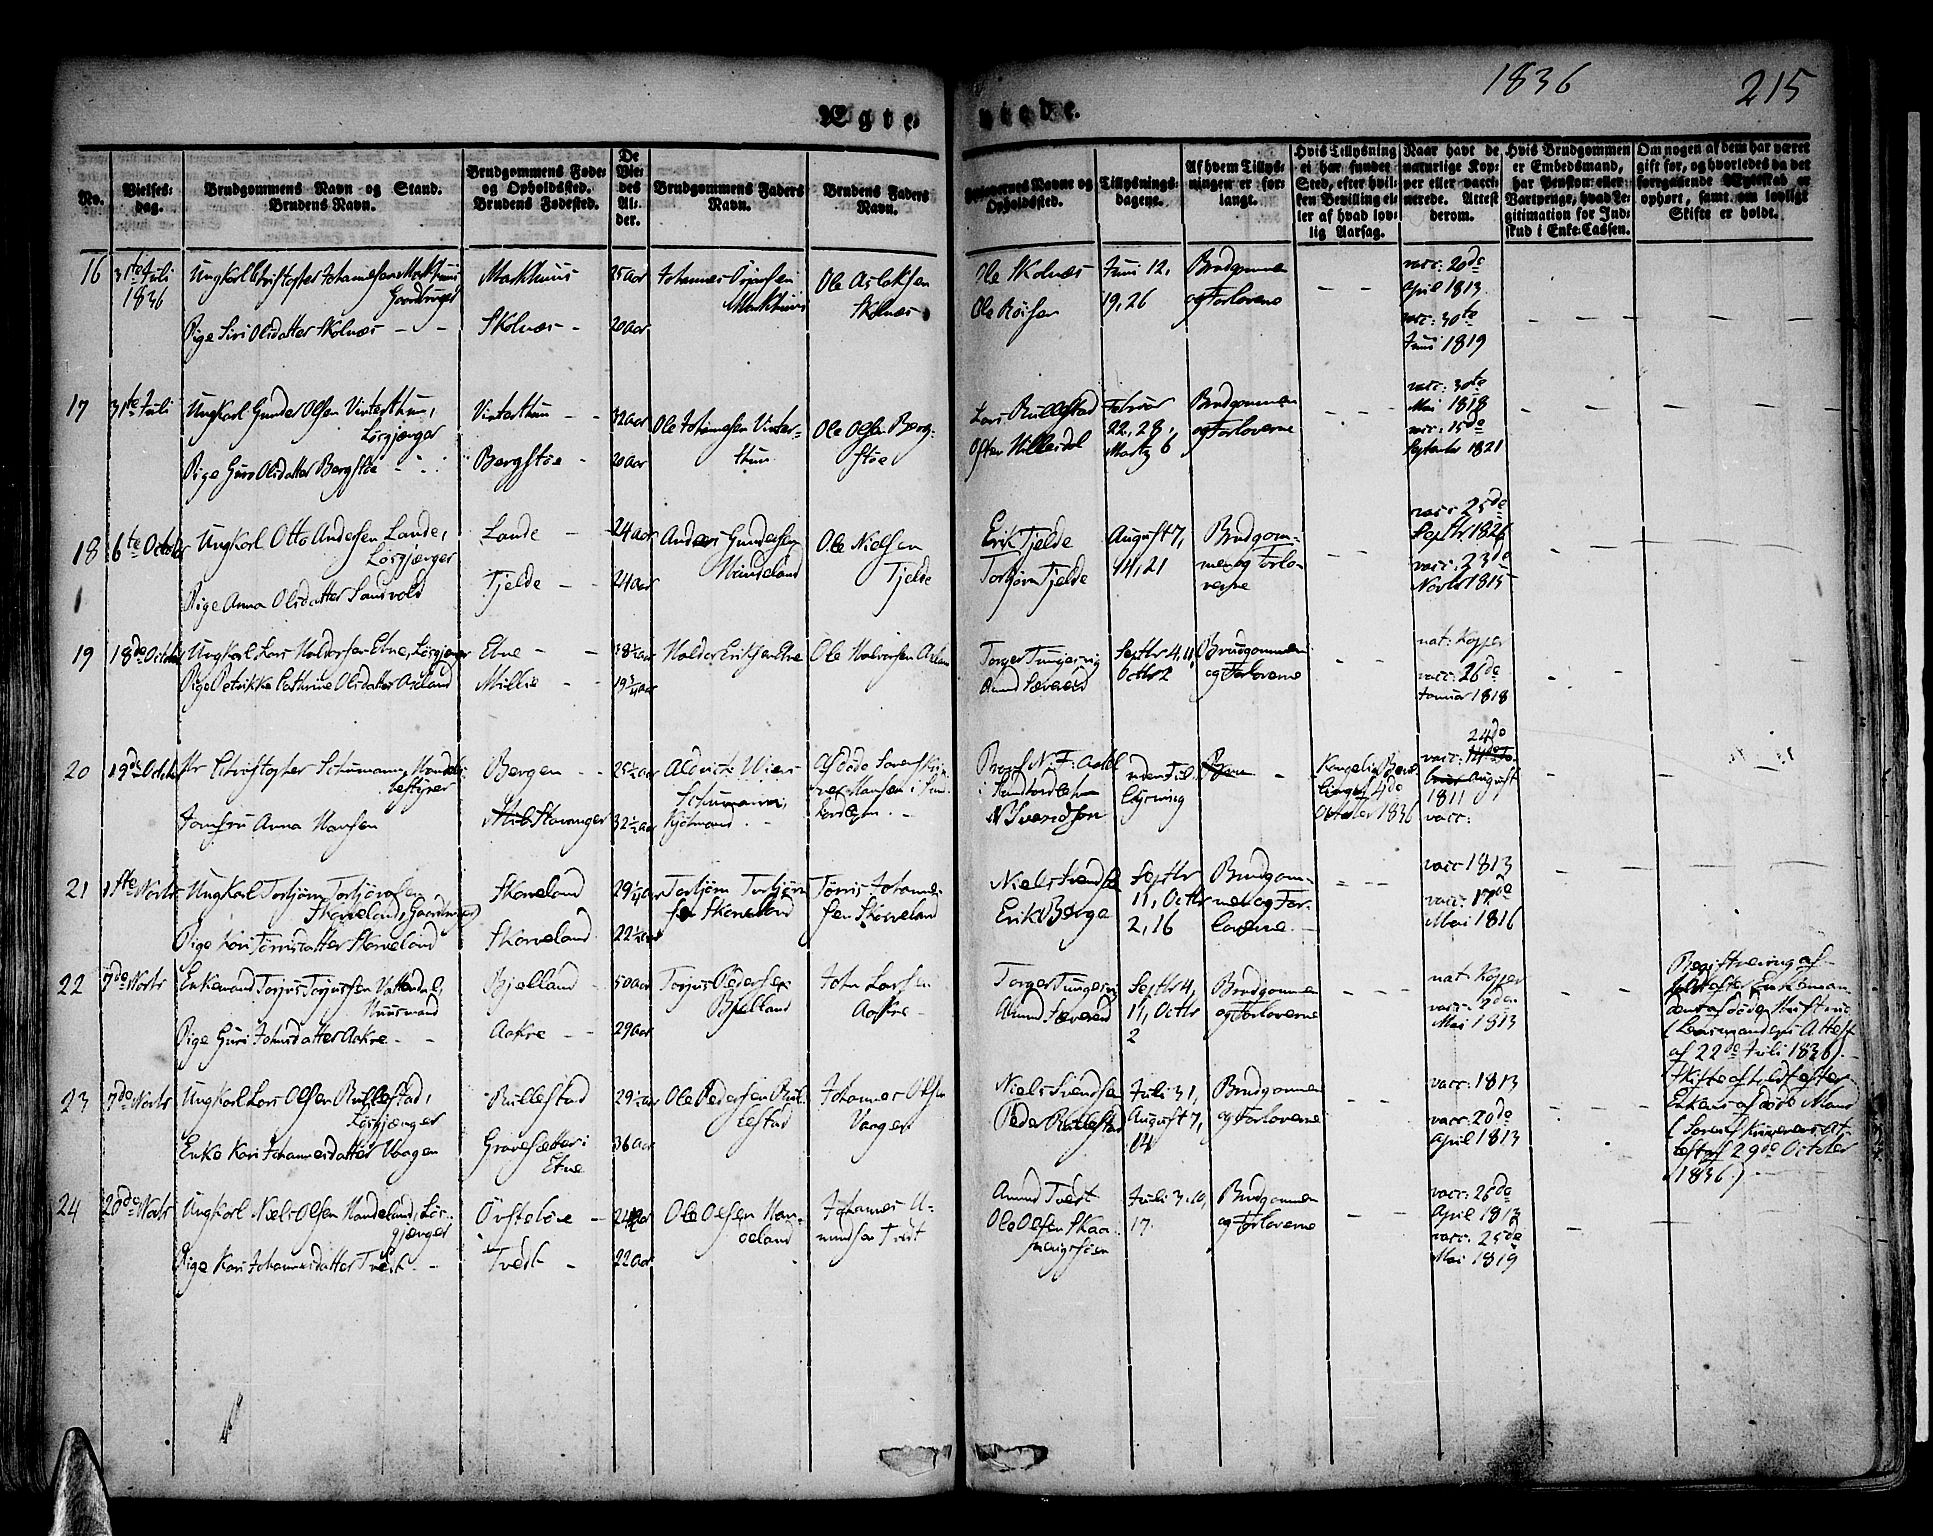 1836
215
Ægte
viede.
No.
Vielses-
dag.
Brudgommens Navn og Stand.
Brudens Navn.
Brudgommens Føde-
og Opholdssted.
Brudens Fødested.
De
Vie-
des
Al-
der.
Brudgommens Faders
Navn.
Brudens Faders
Navn.
Forlovernes Navne og
Opholdssted.
Tillysnings-
dagene.
Af hvem Tillys-
ningen er for-
langt.
Hvis Tillysning
ei har fundet
Sted, efter hvil-
ken Bevilling el-
ler af hvad lov-
lig Aarsag.
Naar havt de
naturlige Kop-
per eller vacci-
nerede. Attest
derom.
Hvis Brudgommen
er Embedsmand,
har Pension eller
Vartpenge, hvad Le-
gitimation for Ind-
skud i Enke-Cassen.
Om nogen af dem har været
gift før, og hvorledes da det
forrgaaende Ægteskab er
ophørt, samt om lovligt
Skifte er holdt.
16
31te Juli
1836
Ungkarl Christopher Johannesen Markhuus
Gaardbruger
Pige Siri Olsdatter Skolnæs - -
Markhuus
Skolnæs -
25 aar
20 aar
Johannes
Markhuus
Ole Aslaksen
Skolnæs
Ole Skolnæs
Ole
Juni 12,
19, 26
Brudgommen
og Forloverne
vacc: 20de
April 1813
vacc: 30te
Juni 1819
17
31te Juli
Ungkarl Gunder Olsen Vinterthun,
Løsgjænger
Pige Guro Olsdatter Bergstøe
Vinterthun - -
Bergstøe -
32 aar
20 aar
Ole Johannesen Vinter-
thun
Ole Olsen Berg-
støe
Lars Rullestad
Osten Milleidel
Februar
22, 28,
Martz 6
Brudgommen
og Forloverne
vacc: 30te
Mai 1818
vacc: 15de
September 1821
18
6te October
Ungkarl Otto Andersen Lande,
Løsgjænger
Pige Anna Olsdatter Sandvold
Lande -
Tjelde -
24 aar
24 aar
Anders Gundersen
Ole Nielsen
Tjelde
Erik Tjelde
Torbjørn Tjelde
August 7,
14, 21
Brudgom-
men og Forlo-
verne
vacc: 25de
Septbr 1826
vacc: 23de
Novbr 1815
19
18de October
Ungkarl Lars Haldorsen Etne, Løsgjænger
Pige Petrikke Cathrine Olsdatter Aseland
Etne - -
Millie - -
19 3/4 aar
Haldor Eriksen Etne
Ole Halvorsen
Torger Tungesvig
Amund Sævereid
Septbr 4, 11,
Octbr 2
Brudgommen
og Forloverne
nat: Kopper
vacc: 26de
Januar 1818
20
19de Octbr
Hr Christopher Schumann, Handels-
bestyrer
Jomfru Anna Hansen
Bergen - -
Stavanger
25 1/2 aar
32 1/2 aar
Schumann,
Kjøbmand
Afdøde
Hansen i
uden Til-
lysning
Kongelig Bevil-
linger 4de
October 1836
24de
vacc:
August
1811
vacc:
21
1ste Novbr
Ungkarl Torbjørn Torbjørnsen
Skorveland, Gaardbruger
Pige Kari Tørrisdatter Skorveland
Skorveland
Skorveland
29 1/4 aar
22 1/2 aar
Torbjørn Torbjørn-
sen Skorveland
Tørris Johanne-
sen Skorveland
Niels Svendsen
Erik Berge
Septbr
11, Octbr
2, 16
Brudgom-
men og For-
loverne -
vacc: 1813
vacc: 17de
Mai 1816
22
7de Novbr
Enkemand Torjus Torjussen Vattedal,
Huusmand
Pige Guri Johnsdatter Aakre - -
Bjelland -
Aakre -
50 aar
29 aar
Torjus Pedersen
Bjelland
John Larsen
Aakre -
Torger Tungesvig
Amund Sævereid
Septbr 4,
11, Octbr
2
Brudgommen
og Forloverne
nat: Kopper
vacc: 2den
Mai 1813
Registrering af-
holdt efter Enkeman-
dens afdøde Hustrue
Attest
af 22de Juli 1836).
23
7de Novbr
Ungkarl Lars Olsen Rullestad,
Løsgjænger
Enke Kari Johannesdatter Vaagen
Rullestad
Etne
29 1/2 aar
36 aar
Ole Pedersen Rul-
lestad
Johannes Olsen
Vaagen
Niels Svendsen
Peder Rullestad
Juli 31,
August 7,
14
Brudgommen
og Forloverne
vacc: 1813
vacc: 20de
April 1813
Skifte afholdt efter
Enkens afdøde Mand
At-
test af 29de October
1836.)
24
20de Novbr
Ungkarl Niels Olsen Handeland, Løs-
gjænger
Pige Kari Johannesdatter Tvedt -
Tvedt -
22 aar
Ole Olsen Han-
deland
Johannes A-
mundsen Tvedt
Amund Tvedt
Ole Olsen
Juli 3, 10,
17.
Brudgommen
og Forloverne
vacc: 26de
April 1813
vacc: 25de
Mai 1819